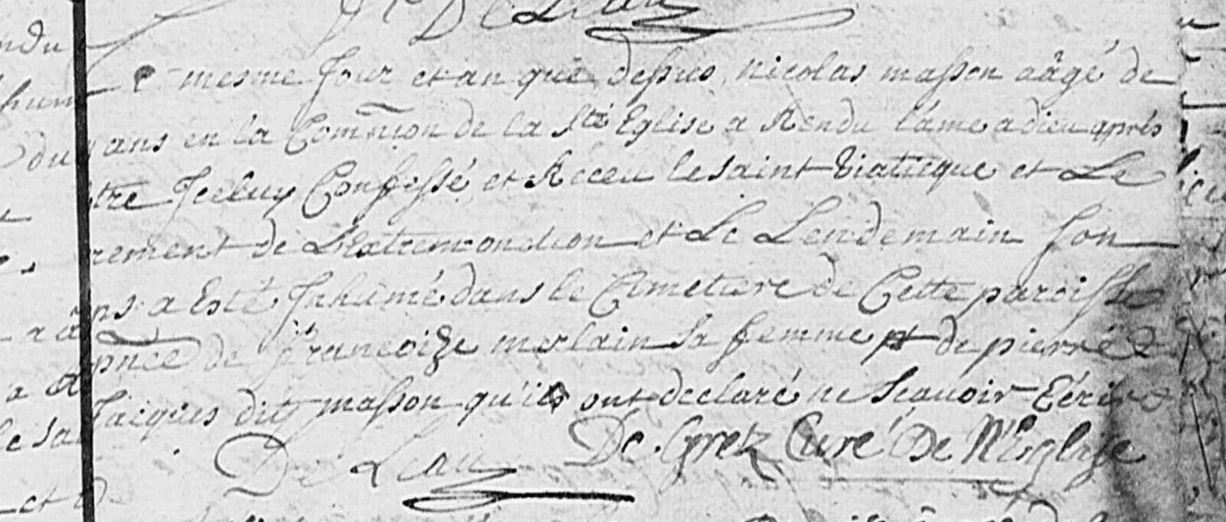 De Leau
e mesme Jour et an que dessus nicolas masson aâgé de
ans en la Com̃nion de la Ste Eglise a Rendu l'ame a dieu après
tre Iceluy Confessé et Receu le saint Viaticque et Le
rement de L'extremonction et Le Lendemain son
ps a Esté Inhumé dans le Cimetiere de Cette paroisse
pnce de francoize merlain sa femme et de pierre &
Jacques dit masson qu'ils ont declaré ne Scauoir Ecrire
De Leau De Gretz Curé De N'Eglise